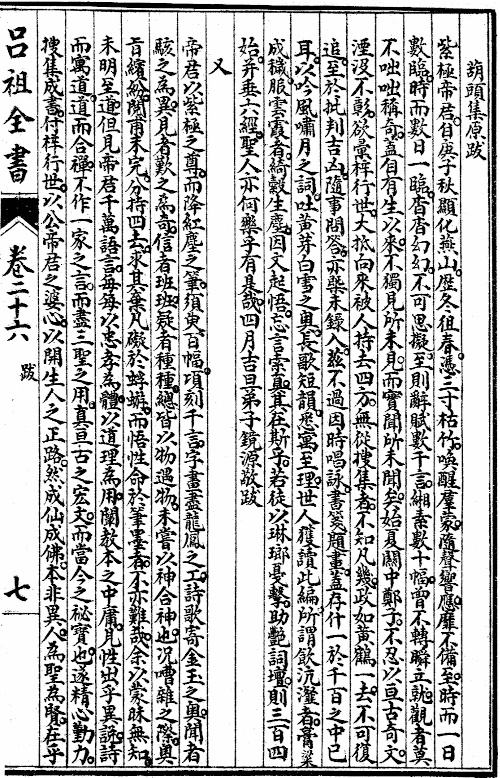 葫頭集原跋
紫極帝君自庚子秋顯化燕山歷冬徂春憑三寸枯竹喚醒羣蒙隨聲響應靡不備至時而一日
數臨時而數日一臨杳杳幻幻不可思擬至則辭賦數千言緗素數十幅曾不轉瞬立就觀者莫
不咄咄稱奇蓋自有生以來不獨見所未見而實聞所未聞矣始夏關中鄭子不忍以亘古奇文
湮沒不彰欲彙梓行世大抵向來被人持去四方無從搜集者不知凡幾政如黃鶴一去不可復
追至於批判吉凶隨事問答亦槩未錄入茲不過因時唱詠書箋題畫蓋存什一於千百之中已
耳以吟風嘯月之詞吐黃芽白雪之奧長歌短韻悉寓至理世人獲讀此編所謂飲沆瀣者膏粱
成穢服雲霞者綺縠生塵因文起悟忘言索真其在斯乎若徒以琳瑯戛擊助艷詞壇則三百四
始并垂六經聖人亦何樂乎有是哉四月吉旦弟子鏡源敬跋
又
帝君以紫極之尊而降紅塵之筆須臾百幅頃刻千言字畫盡龍鳳之工詩歌寄金玉之奧聞者
駭之為異見者歎之為奇信者班班疑者種種總皆以物遇物未嘗以神合神也況嘈雜之際奧
旨繽紛閱甫未完分持四去求其棄凡礙於蜉蝣而悟性命於筆墨者不亦難哉余以蒙昧無知
未明至道但見帝君千萬語言每每以忠孝為體以道理為用闡教本之中庸見性出乎異說詩
而寓道道而合禪不作一家之言而盡三聖之用真亘古之宏文而當今之祕寶也遂精心勤力
搜集成書付梓行世以公帝君之婆心以開生人之正路然成仙成佛本非異人為聖為賢在乎
呂祖全書
卷二十六
跋
七